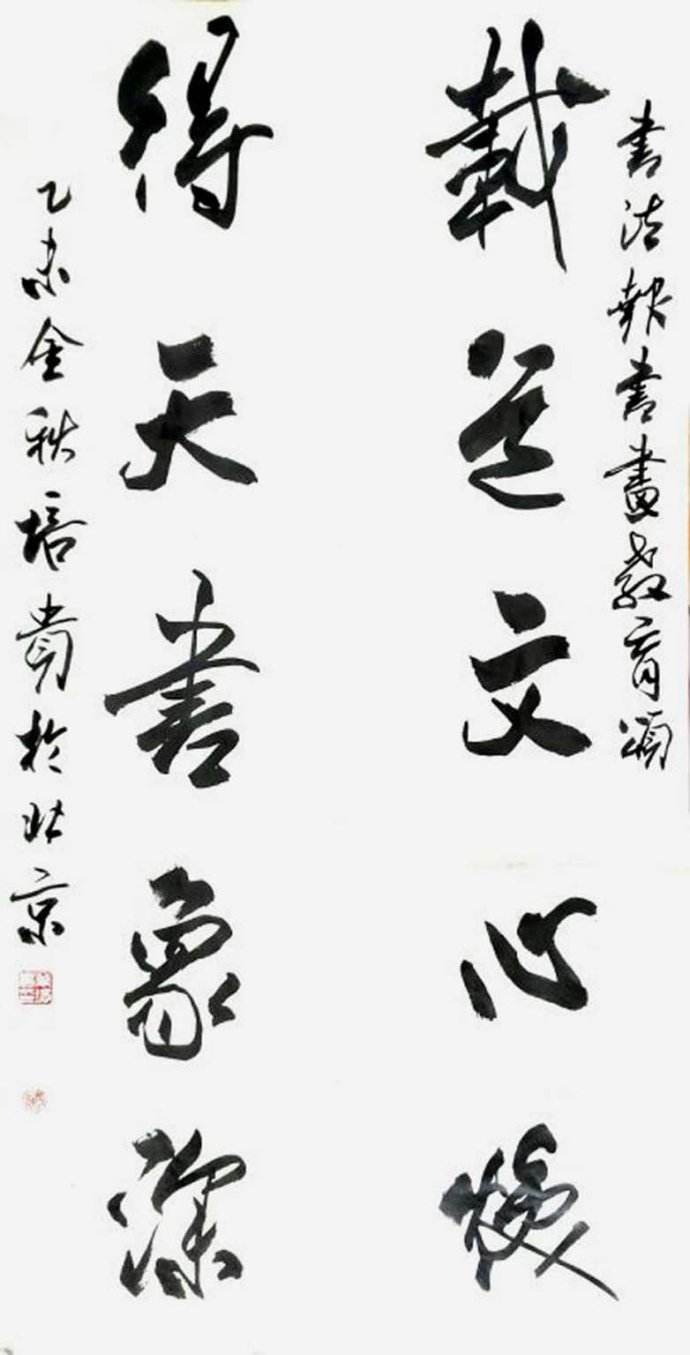 書法報書畫教育頌
載道文心煥
得天書象深
乙未金秋培貴於北京